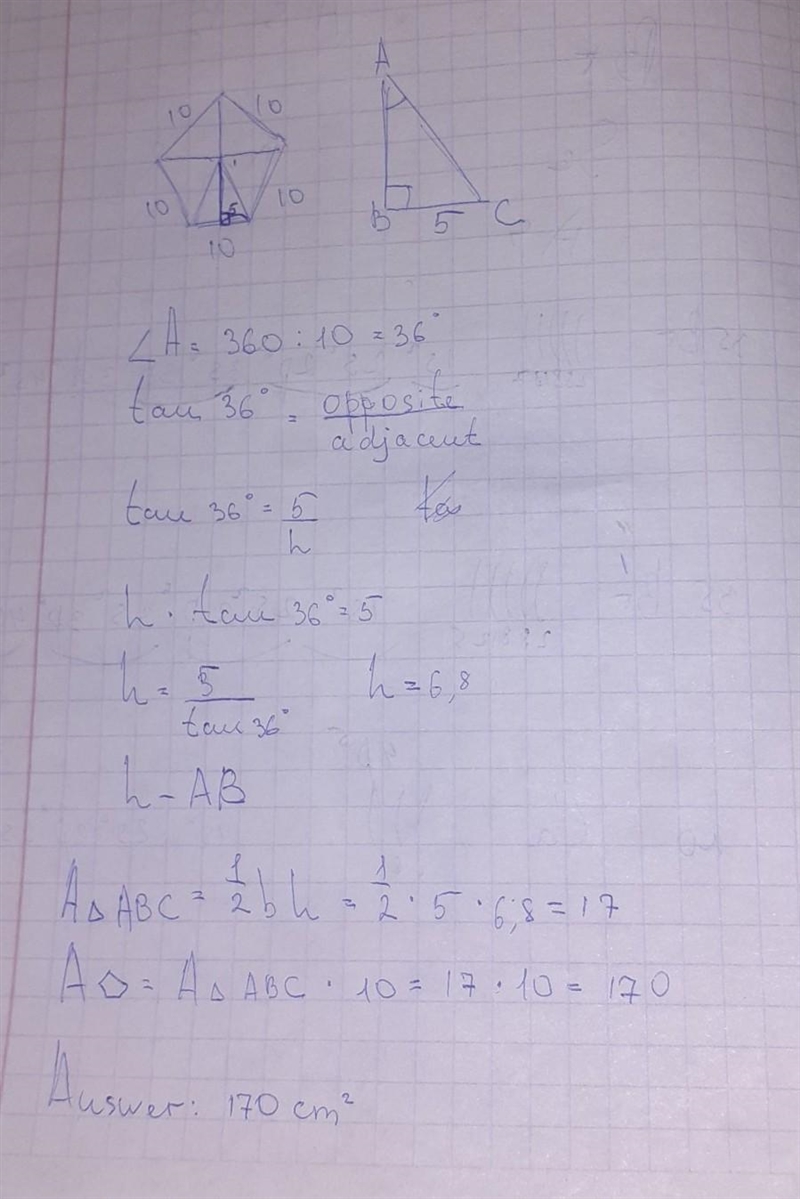 10 10
10 10
5
10
A
B 5 C
∠A = 360 : 10 = 36°
tan 36° = opposite / adjacent
tan 36° = 5 / h
h · tan 36° = 5
h = 5 / tan 36° h = 6,8
h – AB
A△ABC = 1/2 bh = 1/2 · 5 · 6,8 = 17
A⬠ = A△ABC · 10 = 17 · 10 = 170
Answer: 170 cm²